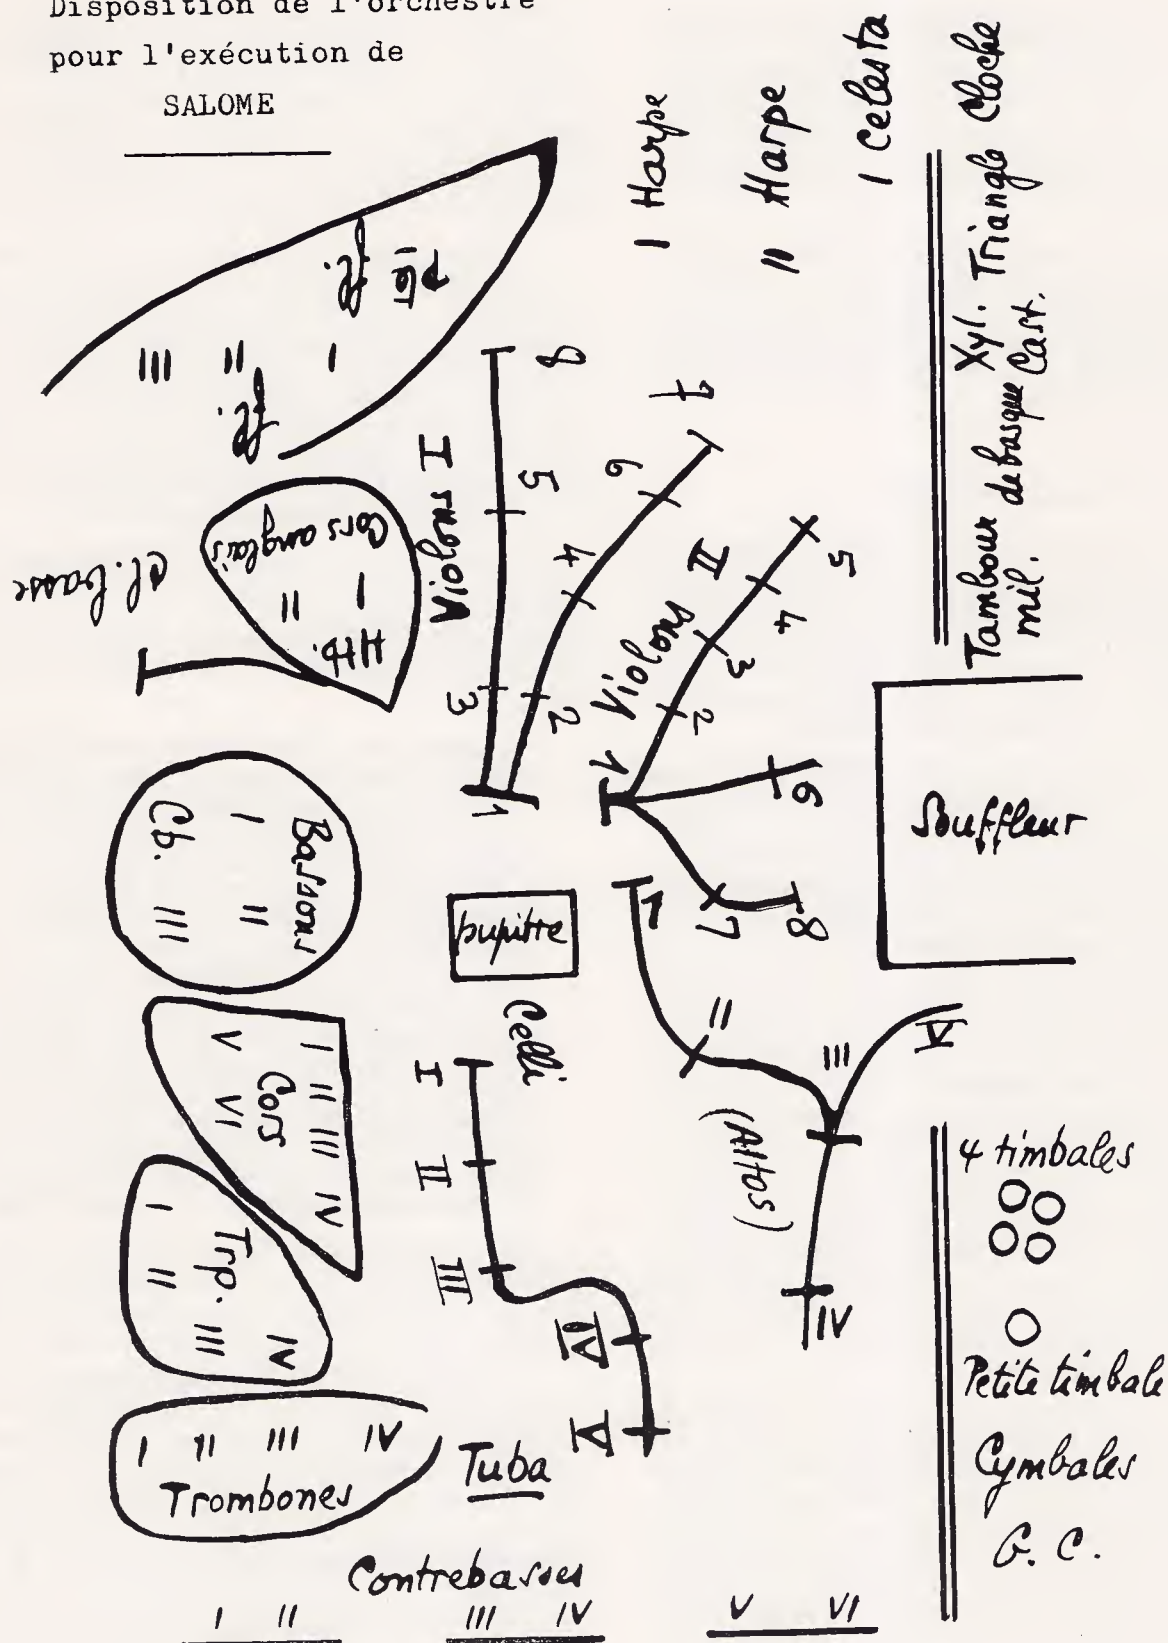 Disposition de l'orchestre
pour l'exécution de
SALOME
I Harpe
II Harpe
I Celesta
Tambour de basque Xyl. Triangle Cloche
mil. Cast.
Pte fl.
I II III
fl.
Cors anglais
I
II
Htb.
Cl. basse
Violons I
8
5
3
1
7
6
4
2
Violons II
5
4
3
2
1
6
7
8
Souffleur
Bassons
I II
Cb. III
pupitre
Celli
I
II
III
IV
V
1
II
III
V
(Altos)
IV
I II III IV
Cors
V VI
Trp.
I II III IV
I II III IV
Trombones
Tuba
4 timbales
Petite timbale
Cymbales
G. C.
Contrebasses
I II III IV V VI